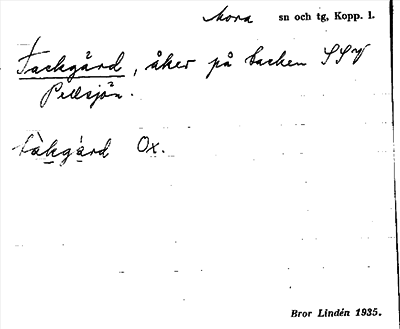 Mora sn och tg, Kopp. l.
Tackgård, åker på backen SSV
Pellsjön.
tàkgàrd Ox.
Bror Lindén 1935.